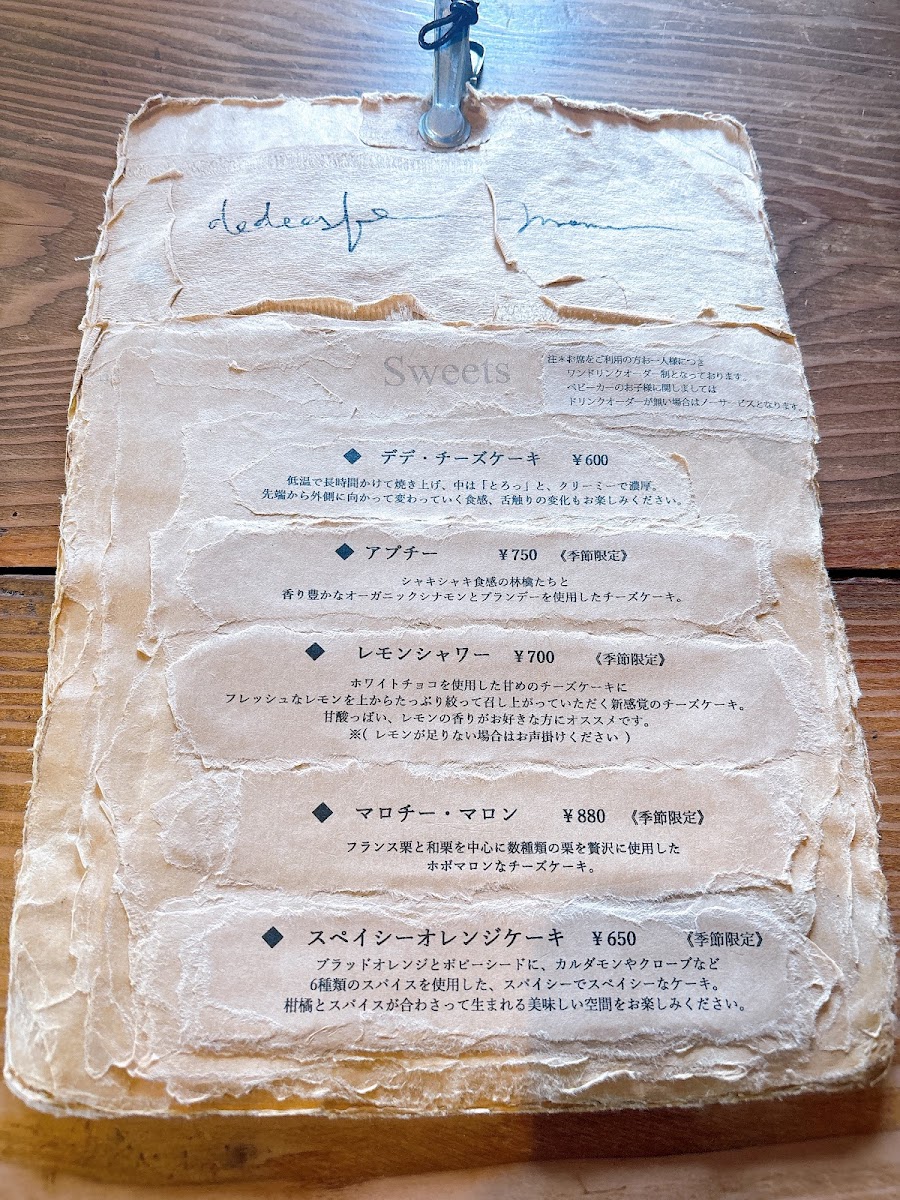 Sweets
注＊お席をご利用の方お一人様につき
ワンドリンクオーダー制となっております。
ベビーカーのお子様に関しましては
ドリンクオーダーが無い場合はノーサービスとなります。
◆ デデ・チーズケーキ ￥600
低温で長時間かけて焼き上げ、中は「とろっ」と、クリーミーで濃厚。
先端から外側に向かって変わっていく食感、舌触りの変化もお楽しみください。
◆ アプチー ￥750 《季節限定》
シャキシャキ食感の林檎たちと
香り豊かなオーガニックシナモンとブランデーを使用したチーズケーキ。
◆ レモンシャワー ￥700 《季節限定》
ホワイトチョコを使用した甘めのチーズケーキに
フレッシュなレモンを上からたっぷり絞って召し上がっていただく新感覚のチーズケーキ。
甘酸っぱい、レモンの香りがお好きな方にオススメです。
※( レモンが足りない場合はお声掛けください )
◆ マロチー・マロン ￥880 《季節限定》
フランス栗と和栗を中心に数種類の栗を贅沢に使用した
ホボマロンなチーズケーキ。
◆ スペイシーオレンジケーキ ￥650 《季節限定》
ブラッドオレンジとポピーシードに、カルダモンやクローブなど
6種類のスパイスを使用した、スパイシーでスペイシーなケーキ。
柑橘とスパイスが合わさって生まれる美味しい空間をお楽しみください。